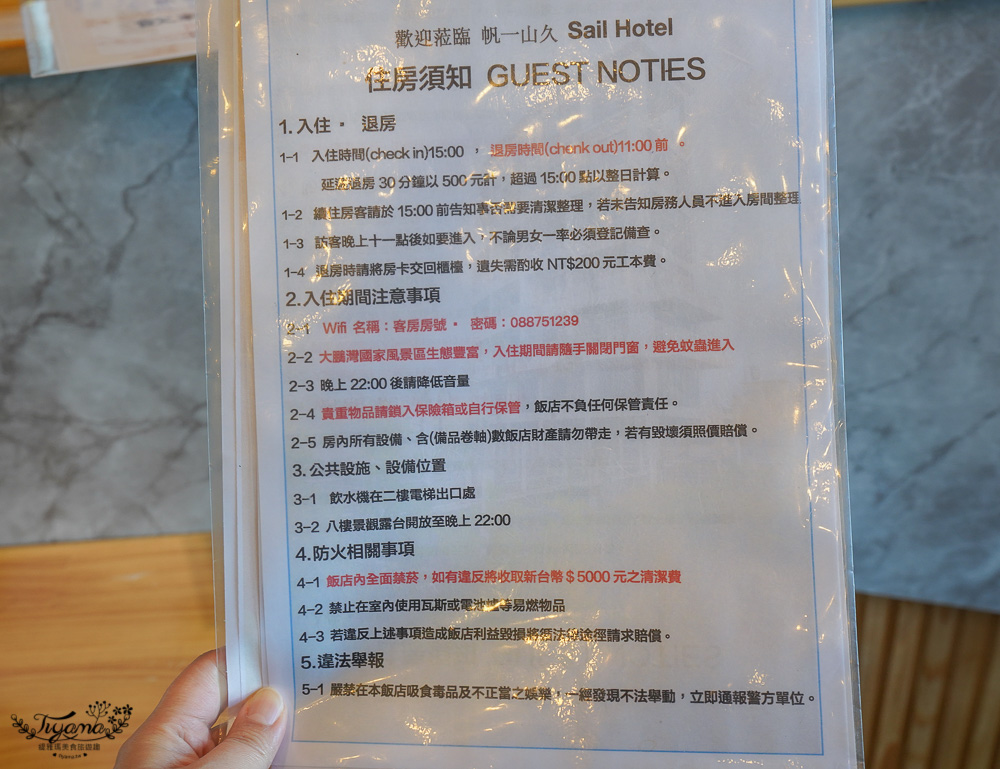 歡迎蒞臨 帆一山久 Sail Hotel
住房須知 GUEST NOTIES
1.入住。 退房
1-1 入住時間(check in)15:00 ， 退房時間(chenk out)11:00 前 。
延遲退房 30 分鐘以 500 元計，超過 15:00 點以整日計算。
1-2 續住房客請於 15:00 前告知事否需要清潔整理，若未告知房務人員不進入房間整理
1-3 訪客晚上十一點後如要進入，不論男女一率必須登記備查。
1-4 退房時請將房卡交回櫃檯，遺失需酌收 NT$200 元工本費。
2.入住期間注意事項
2-1 Wifi 名稱：客房房號。 密碼：088751239
2-2 大鵬灣國家風景區生態豐富，入住期間請隨手關閉門窗，避免蚊蟲進入
2-3 晚上 22:00 後請降低音量
2-4 貴重物品請鎖入保險箱或自行保管，飯店不負任何保管責任。
2-5 房內所有設備、含(備品卷軸)數飯店財產請勿帶走，若有毀壞須照價賠償。
3.公共設施、設備位置
3-1 飲水機在二樓電梯出口處
3-2 八樓景觀露台開放至晚上 22:00
4.防火相關事項
4-1 飯店內全面禁菸，如有違反將收取新台幣$5000 元之清潔費
4-2 禁止在室內使用瓦斯或電池爐等易燃物品
4-3 若違反上述事項造成飯店利益毀損將循法律途徑請求賠償。
5.違法舉報
5-1 嚴禁在本飯店吸食毒品及不正當之娛樂，一經發現不法舉動，立即通報警方單位。
Tiyama
緹雅瑪美食旅遊趣